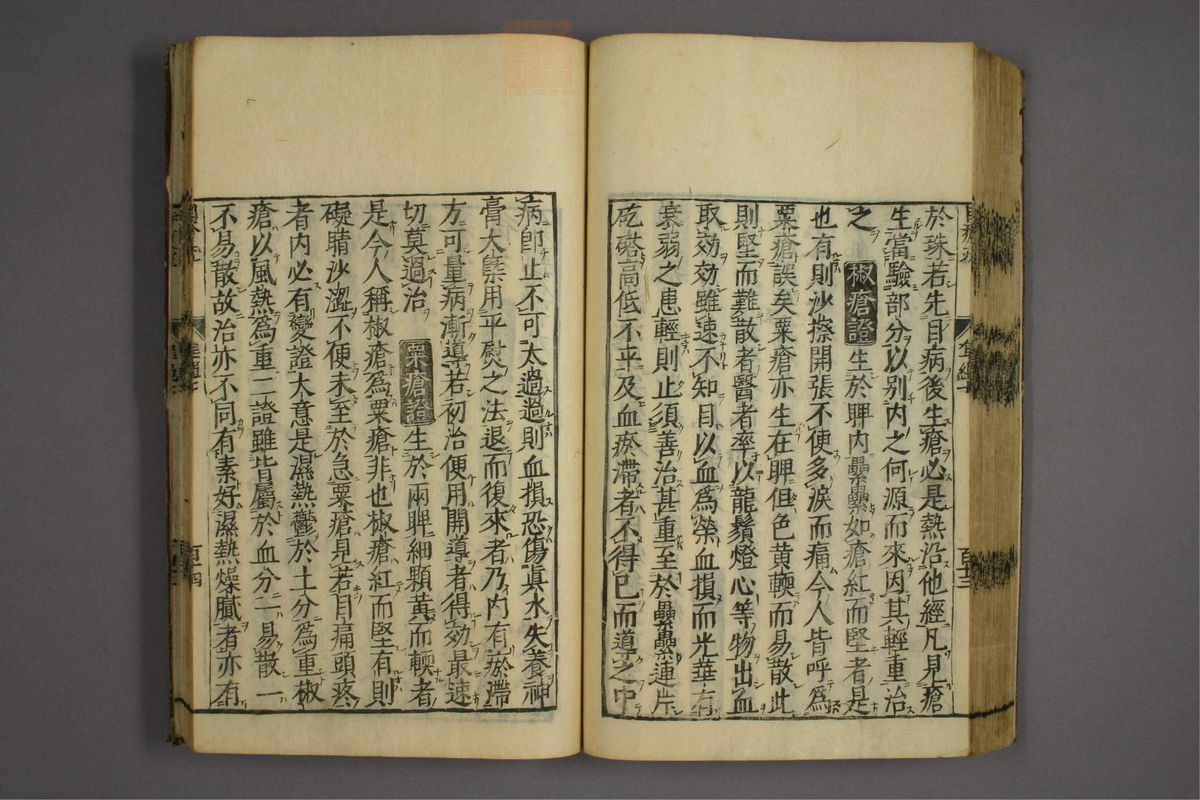 於珠若先目病後生瘡必是熱沿他經凡見瘡
生當驗部分以別内之何源而來因其輕重治
之 椒瘡證 生於睥内纍纍如瘡紅而堅者是
也有則沙擦開張不便多淚而痛今人皆呼爲
粟瘡誤矣粟瘡亦生在睥但色黄軟而易散此
則堅而難散者醫者率以龍鬚燈心等物出血
取効効雖速不知目以血爲榮血損而光華有
衰弱之患輕則止須善治甚重至於纍纍連片
疙瘩高低不平及血瘀滯者不得已而導之中
病卽止不可太過過則血損恐傷眞水失養神
膏大槩用平熨之法退而復來者乃内有瘀滯
方可量病漸導若初治便用開導者得効最速
切莫過治 粟瘡證 生於兩睥細顆黄而軟者
是今人稱椒瘡爲粟瘡非也椒瘡紅而堅有則
礙睛沙澀不便未至於急粟瘡見若目痛頭疼
者内必有變證大意是濕熱鬱於土分爲重椒
瘡以風熱爲重二證雖皆屬於血分一易散一
不易散故治亦不同有素好濕熱燥膩者亦有
百三四